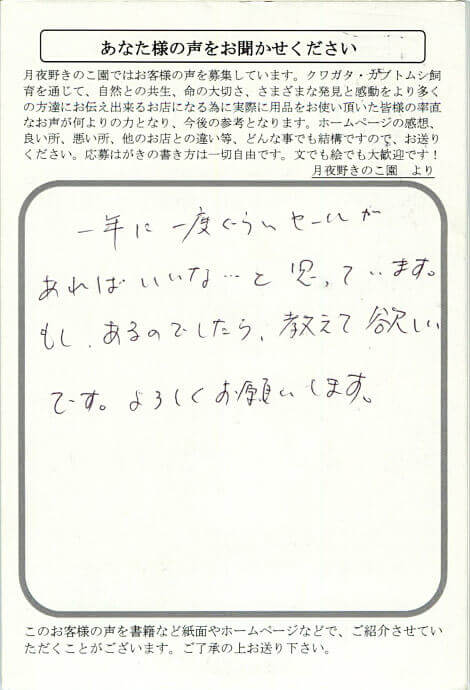 あなた様の声をお聞かせください
月夜野きのこ園ではお客様の声を募集しています。クワガタ・カブトムシ飼
育を通じて、自然との共生、命の大切さ、さまざまな発見と感動をより多く
の方達にお伝え出来るお店になる為に実際に用品をお使い頂いた皆様の率直
なお声が何よりの力となり、今後の参考となります。ホームページの感想、
良い所、悪い所、他のお店との違い等、どんな事でも結構ですので、お送り
ください。応募はがきの書き方は一切自由です。文でも絵でも大歓迎です！
月夜野きのこ園　より
一年に一度ぐらいセールが
あればいいな…と思っています。
もし、あるのでしたら、教えて欲しい
です。よろしくお願いします。
このお客様の声を書籍など紙面やホームページなどで、ご紹介させてい
ただくことがございます。ご了承の上お送り下さい。